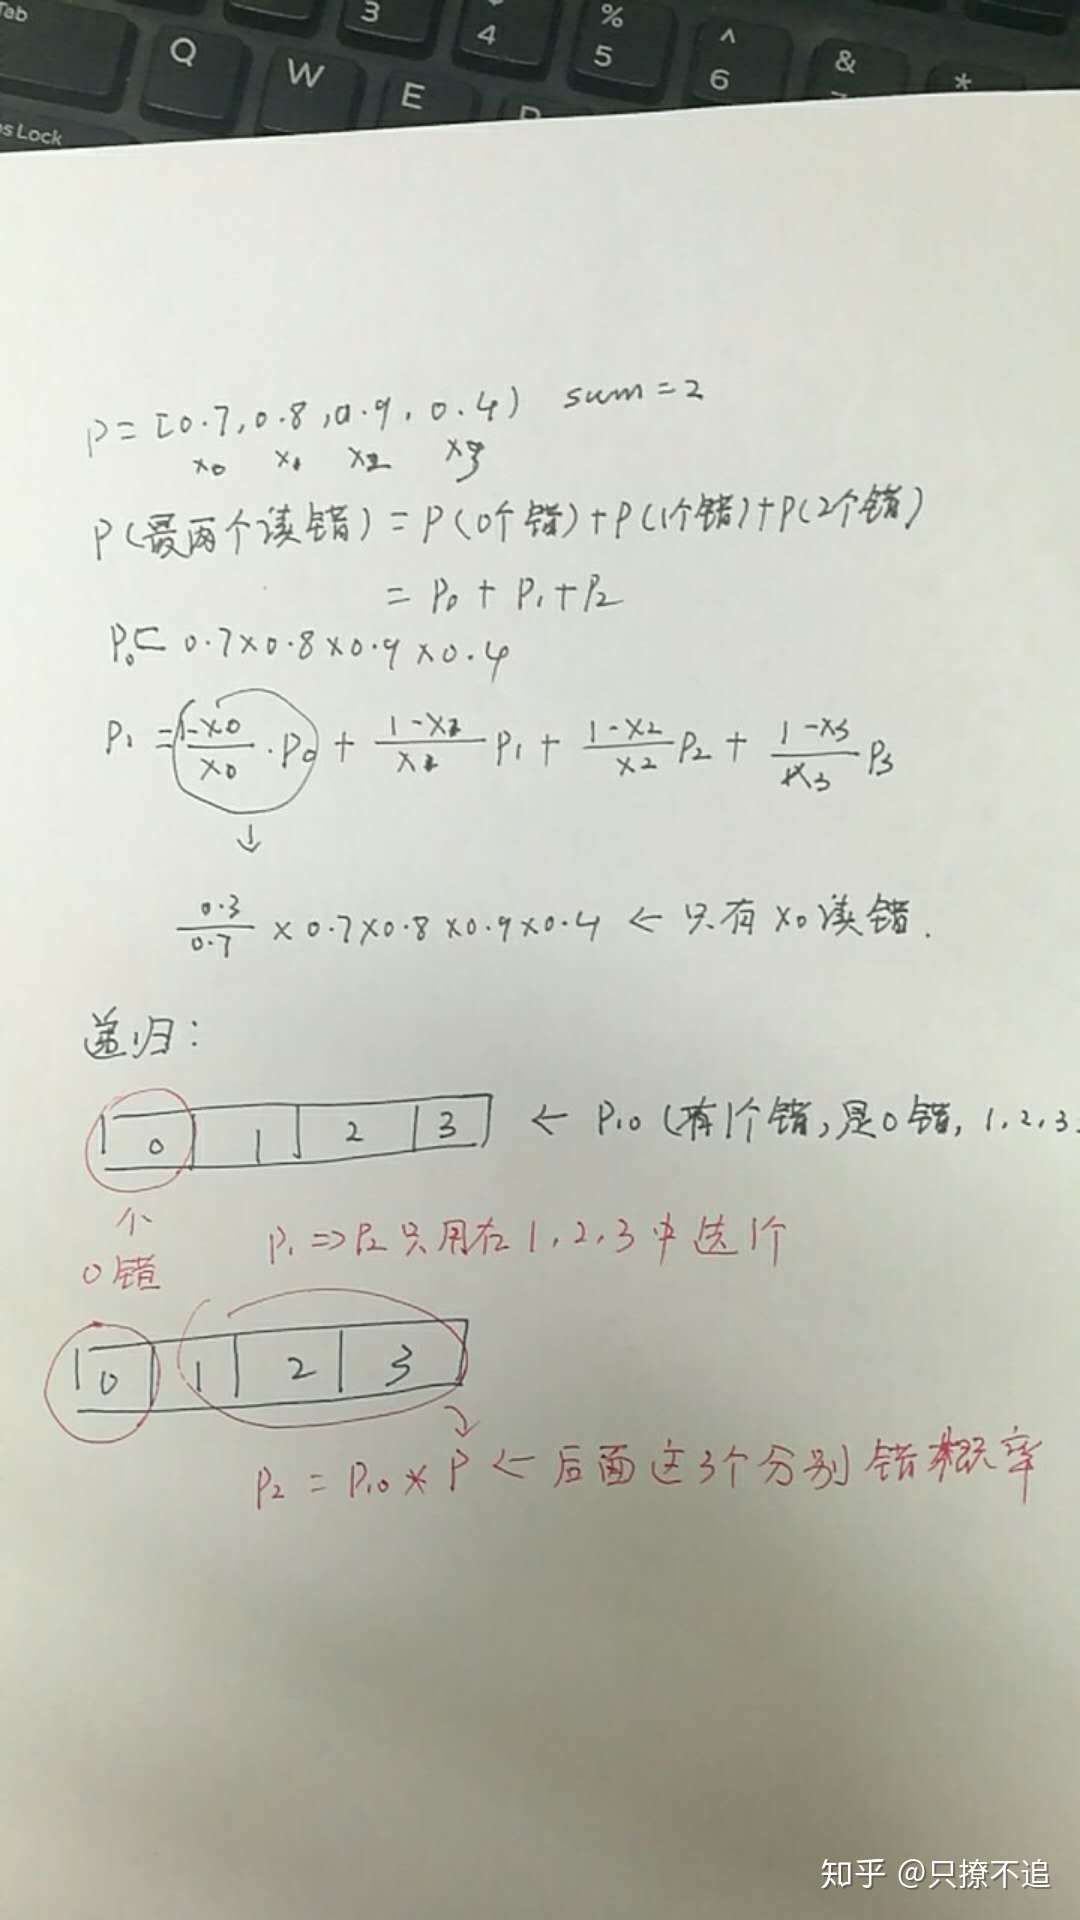 Tab Q W E 3 4 % 5 ^ 6 & *
s Lock
P = [0.7, 0.8, 0.9, 0.4) sum = 2
x0 x1 x2 x3
P(最两个读错) = P(0个错) + P(1个错) + P(2个错)
= P0 + P1 + P2
P0 = 0.7×0.8×0.9×0.4
P1 = 1-x0/x0 · P0 + 1-x1/x1 P1 + 1-x2/x2 P2 + 1-x3/x3 P3
↓
0.3/0.7 × 0.7×0.8×0.9×0.4 ← 只有x0读错.
递归:
0 1 2 3 ← P10 (有1个错,是0错, 1, 2, 3
个
0错
P1 => P2 只用在1, 2, 3中选1个
0 1 2 3
P2 = P10 * P ← 后面这3个分别错概率
知乎 @只撩不追